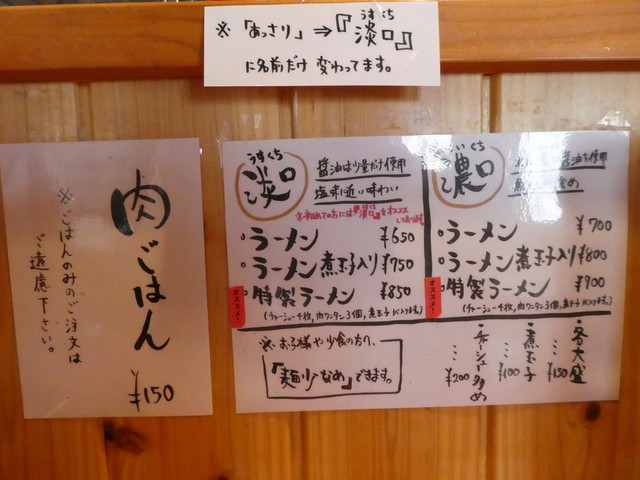 ※「あっさり」⇒『淡口』
うすくち
に名前だけ変わってます。
肉ごはん
※ごはんのみのご注文は
ご遠慮下さい。
¥150
うすくち
淡口
醤油は少量だけ使用
塩味に近い味わい
ラーメン ¥650
ラーメン煮玉子入り ¥750
オススメ!
特製ラーメン ¥850
(チャーシュー4枚,肉ワンタン3個,煮玉子が入ります。)
こいくち
濃口
ラーメン ¥700
ラーメン煮玉子入り ¥800
オススメ!
特製ラーメン ¥900
(チャーシュー4枚,肉ワンタン3個,煮玉子が入ります。)
※お子様や少食の方へ、
「麺少なめ」できます。
・各大盛 … ¥150
・煮玉子 … ¥100
・チャーシュー多め … ¥200